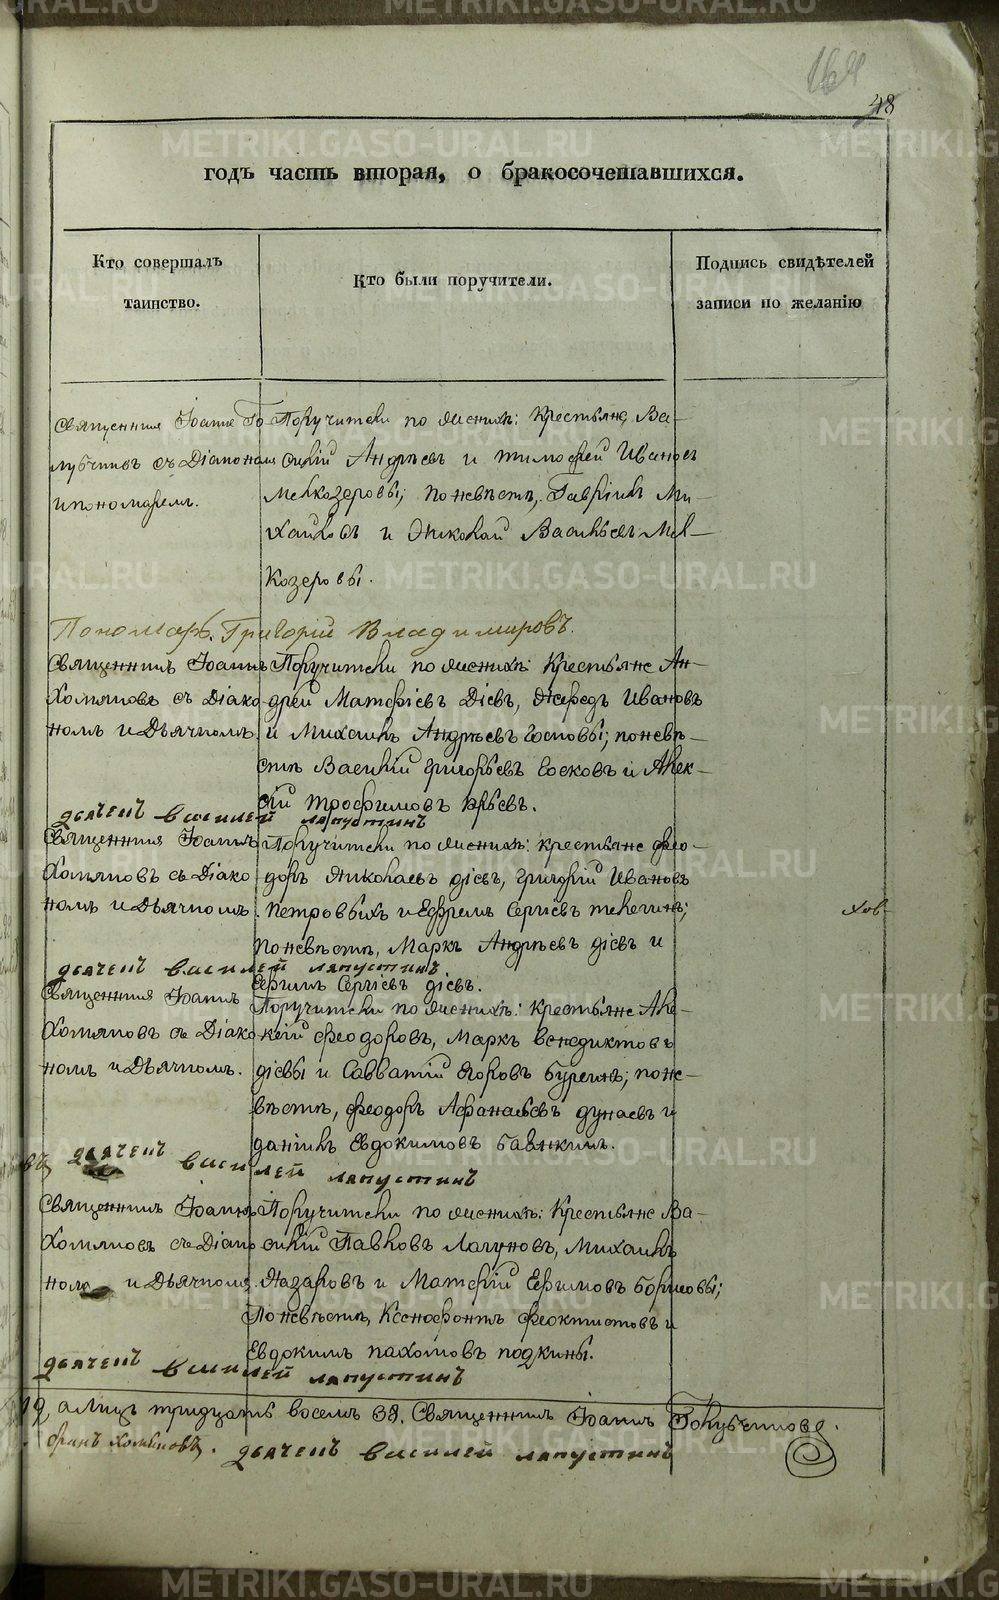 164
48
годъ часть вторая, о бракосочетавшихся.
Кто совершалъ
таинство.
Кто были поручители.
Подпись свидѣтелей
записи по желанію
Священникъ Іоаннъ Го
лубчиковъ съ Діакономъ
и пономаремъ.
Поручители по женихѣ: Крестьяне Ва-
силій Андреевъ и Тимофей Ивановъ
Мелкозеровы; по невѣстѣ, Гавріилъ Ми-
хайловъ и Николай Васильевъ Мел-
козеровы.
Пономарь Григорій Владимировъ.
Священникъ Іоаннъ
Хомяковъ съ Діако
номъ и Дьячкомъ.
Поручители по женихѣ: Крестьяне Ан-
дрей Матфіевъ Діевъ, Ивановъ
и Михаилъ Андреевъ Госковы; по невѣ-
стѣ Василій Григорьевъ Госковъ и Алек-
сій Трофимовъ Юрьевъ.
дьячекъ василей ляпустинъ
Священникъ Іоаннъ
Хомяковъ съ Діако
номъ и Дьячкомъ.
Поручители по женихѣ: крестьяне Фео-
доръ Николаевъ Діевъ, Григорій Ивановъ
Петровыхъ и Ефремъ Сергіевъ Телегинъ;
по невѣстѣ, Маркъ Андреевъ Діевъ и
Ефимъ Сергіевъ Діевъ.
хов-
дьячекъ василей ляпустинъ
Священникъ Іоаннъ
Хомяковъ съ Діако
номъ и Дьячкомъ.
Поручители по женихѣ: Крестьяне Але-
ксій Феодоровъ, Маркъ Венедиктовъ
Діевы и Савватій Егоровъ Бурганъ; по не-
вѣстѣ, Феодоръ Афанасьевъ Дунаевъ и
Даніилъ Евдокимовъ
дьячекъ василей ляпустинъ
Священникъ Іоаннъ
Хомяковъ съ Діако
номъ и Дьячкомъ.
Поручители по женихѣ: Крестьяне Ва-
силій Павловъ Лагуновъ, Михаилъ
Назаровъ и Матфій Ефимовъ Борисовы;
По невѣстѣ, Ксенофонтъ Феоктистовъ и
Евдокимъ Пахомовъ Подкины.
дьячекъ василей ляпустинъ
а лицъ тридцать восемь 38. Священникъ Іоаннъ Голубчиковъ.
Хомяковъ. дьячекъ василей ляпустинъ
METRIKI.GASO-URAL.RU